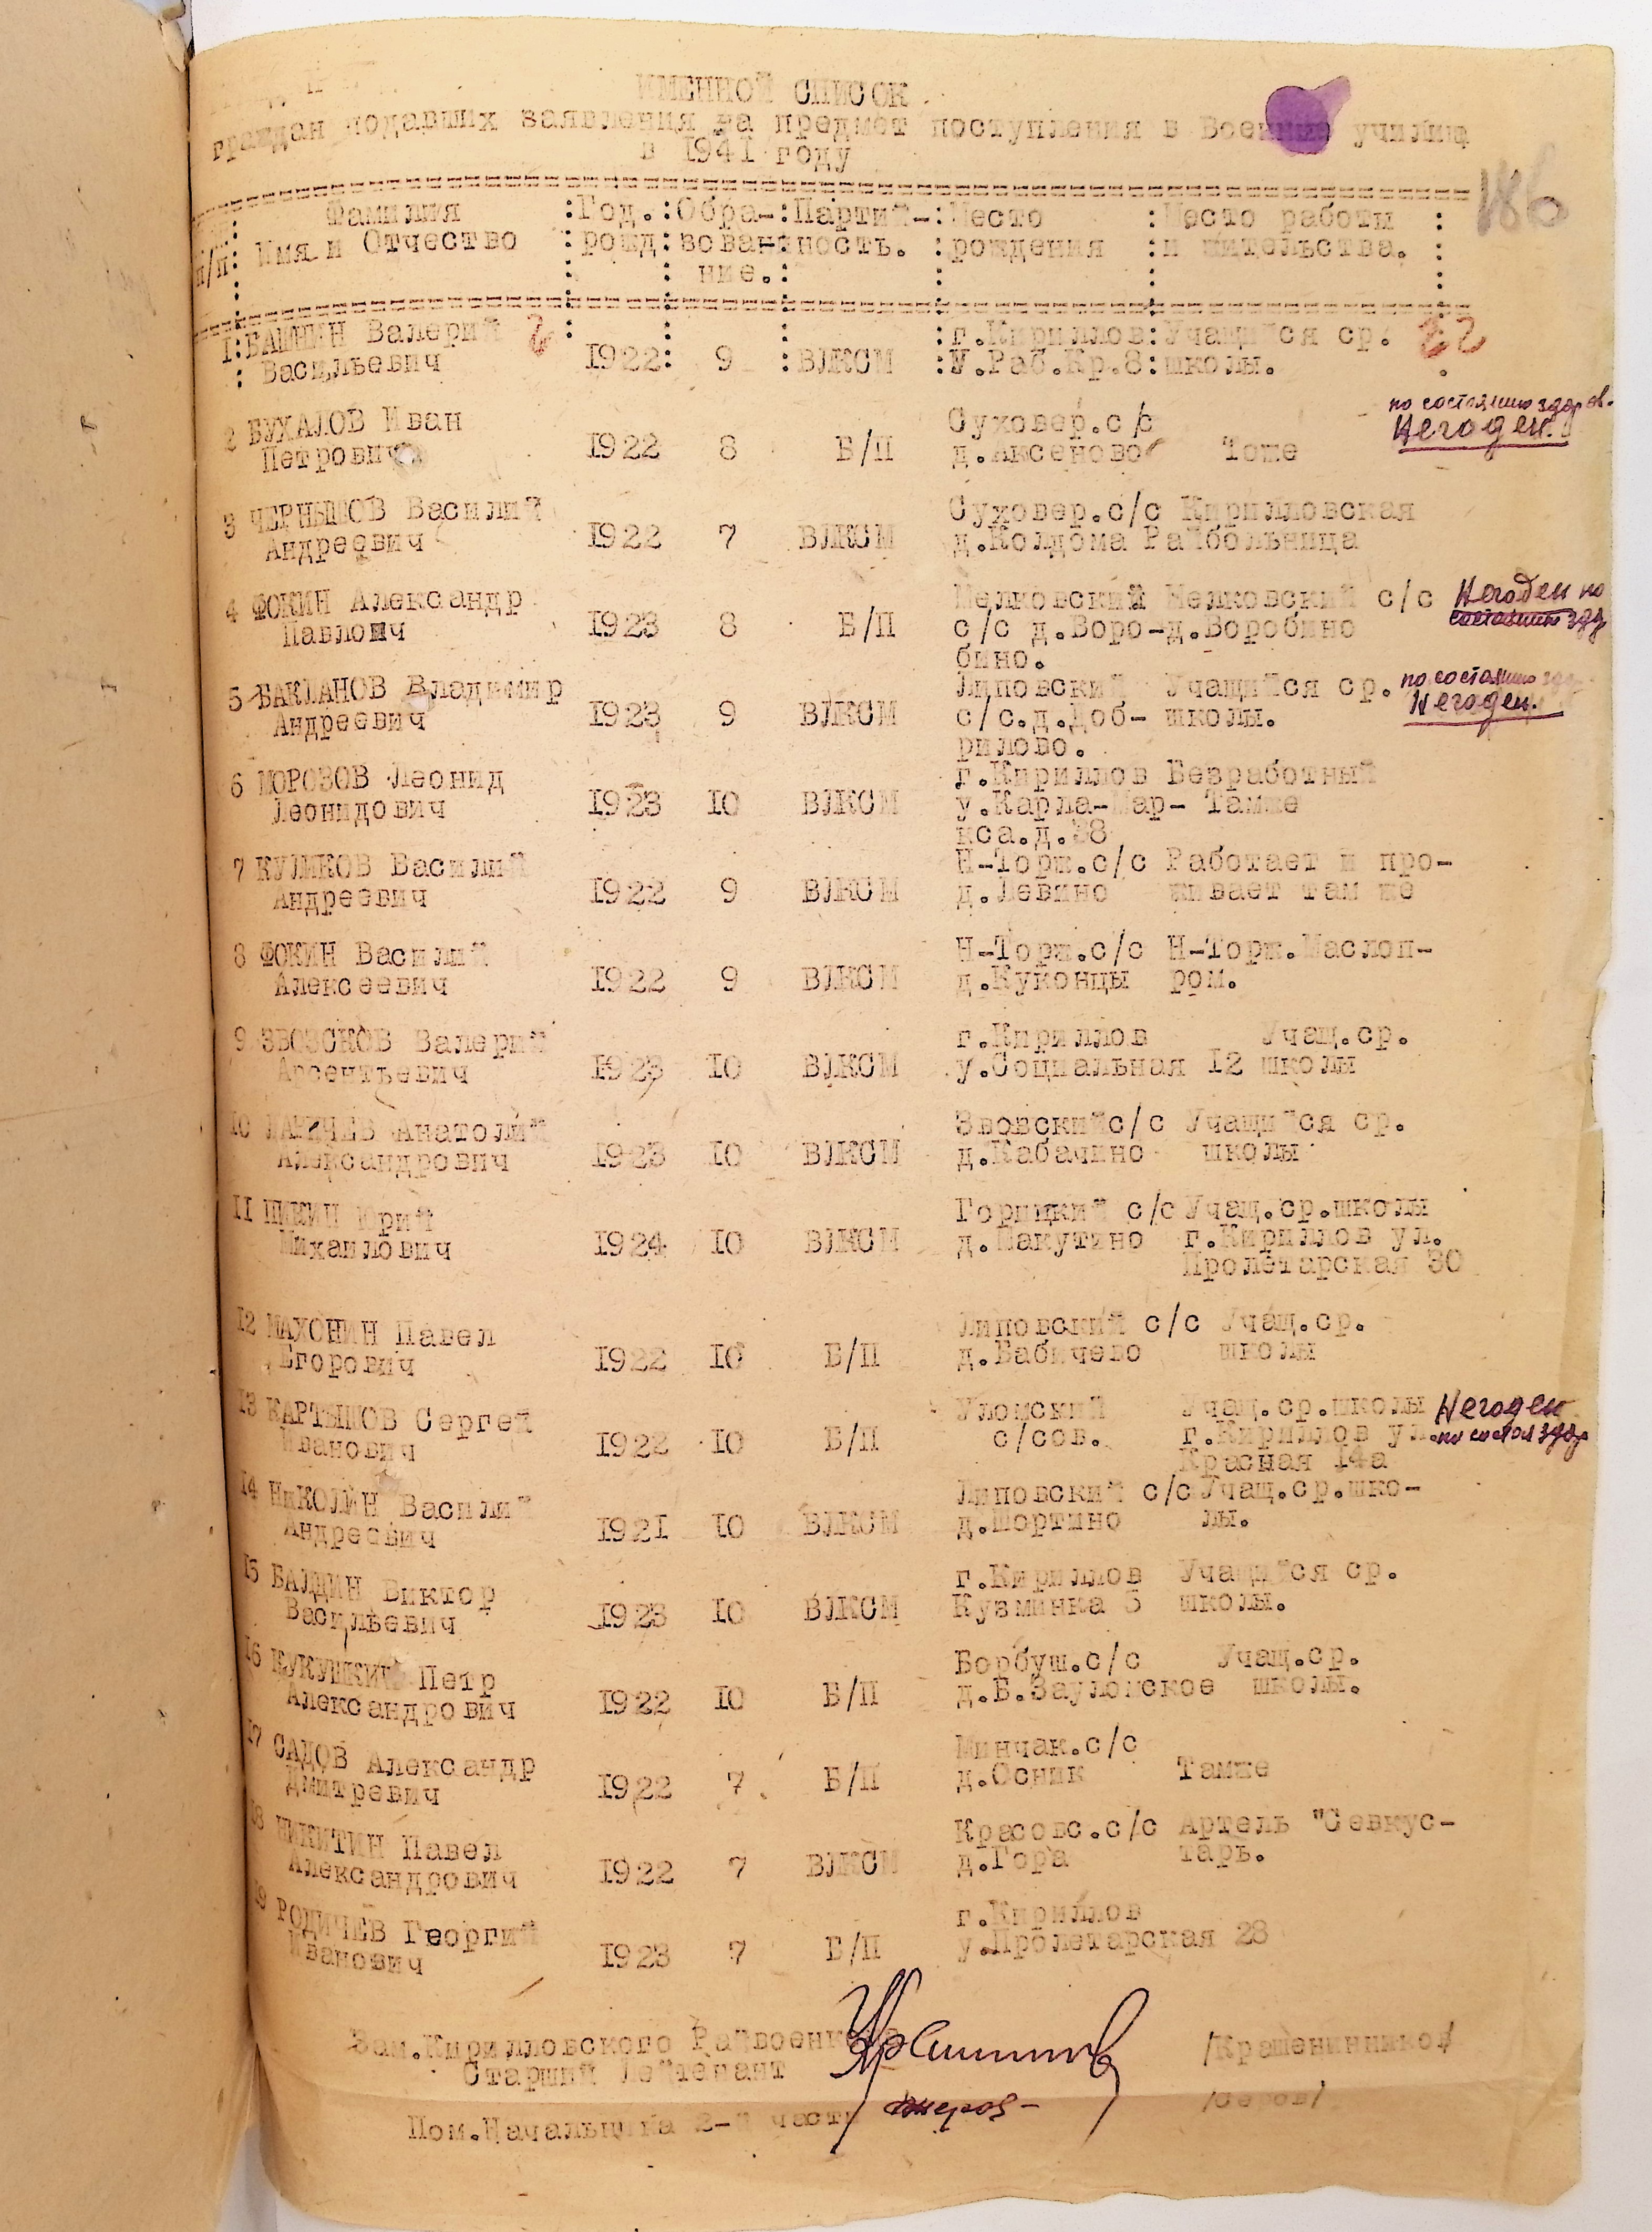 ИМЕННОЙ СПИСОК
граждан подарших заявления на предмет поступления в Военные училищ
в 1941 году
186
Фамилия :Год.:Обра-:Партий-:Место :Место работы :
п/п: Имя и Отчество :рожд:зован:ность. :рождения :и жительства. :
ние.:
1: Валерий 2 : г.Кириллов:Учащийся ср. 22
: Васильевич 1922: 9 :ВЛКСМ :У.Раб.Кр.8:школы.
2 БУХАЛОВ Иван Суховер.с/с по состоянию здоров.
Петрович 1922 8 Б/П д.Аксеново Тоже Негоден.
3 ЧЕРНЫШОВ Василий Суховер.с/с Кирилловская
Андреевич 1922 7 ВЛКСМ д.Колдома Райбольница
4 ФОКИН Александр Мелковский Мелковский с/с Негоден по
Павлович 1923 8 Б/П с/с д.Воро-д.Воробино состоянию здр
бино.
5 БАКЛАНОВ Владимир Липовский Учащийся ср. по состоянию здр.
Андреевич 1923 9 ВЛКСМ с/с.д.Доб- школы. Негоден.
рилово.
6 МОРОЗОВ Леонид г.Кириллов Безработный
Леонидович 1923 10 ВЛКСМ у.Карла-Мар- Тамже
кса.д.38
7 КУЛИКОВ Василий Н-Торж.с/с Работает и про-
Андреевич 1922 9 ВЛКСМ д.Левино живает там же
8 ФОКИН Василий Н-Торж.с/с Н-Торж.Маслоп-
Алексеевич 1922 9 ВЛКСМ д.Куконцы ром.
9 ЗВОЗСКОВ Валерий г.Кириллов Учащ.ср.
Арсентьевич 1923 10 ВЛКСМ у.Социальная 12 школы
10 Анатолий Звовскийс/с Учащийся ср.
Александрович 1923 10 ВЛКСМ д.Кабачино школы
11 Юрий Горицкий с/с Учащ.ср.школы
Михаилович 1924 10 ВЛКСМ д.Пакутино г.Кириллов ул.
Пролетарская 30
12 МАХОНИН Павел Липовский с/с Учащ.ср.
Егорович 1922 10 Б/П д.Бабичево школы
13 КАРТЫШОВ Сергей Уломский Учащ.ср.школы Негоден
Иванович 1922 10 Б/П с/сов. г.Кириллов ул. по состоя здор
Красная 14а
14 НиКОЛИН Василий Липовский с/с Учащ.ср.шко-
Андреевич 1921 10 ВЛКСМ д.Шортино лы.
15 БАЛДИН Виктор г.Кириллов Учащийся ср.
Васильевич 1923 10 ВЛКСМ Кузминка 5 школы.
16 КУКУШКИН Петр Борбуш.с/с Учащ.ср.
Александрович 1922 10 Б/П д.Б.Зауломское школы.
17 САДОВ Александр Минчак.с/с
Дмитревич 1922 7 Б/П д.Осник Тамже
18 НИКИТИН Павел Красовс.с/с Артель "Севкус-
Александрович 1922 7 ВЛКСМ д.Гора тарь.
19 РОДИЧЕВ Георгий г.Кириллов
Иванович 1923 7 Б/П у.Пролетарская 28
Зам.Кирилловского Райвоенкома /Крашенинников/
Старший Лейтенант
Пом.Начальника 2-й части /Серов/